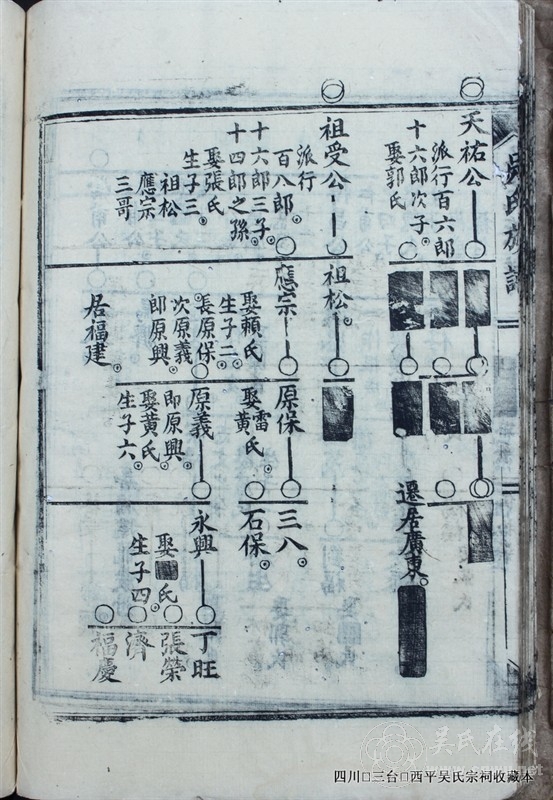 吳氏族譜
天祐公
派行百六郎
十六郎次子
娶郭氏
遷居廣東
祖受公
派行
百八郎
十六郎三子
十四郎之孫
娶張氏
生子三
祖松
應宗
三哥
祖松
應宗
娶賴氏
生子二
長原保
次原義
即原興
居福建
原保
娶雷氏
原義
即原興
娶黃氏
生子六
三八
石保
永興
娶氏
生子四
丁旺
張榮
濟
福慶
吴氏在线
四川□三台□西平吴氏宗祠收藏本